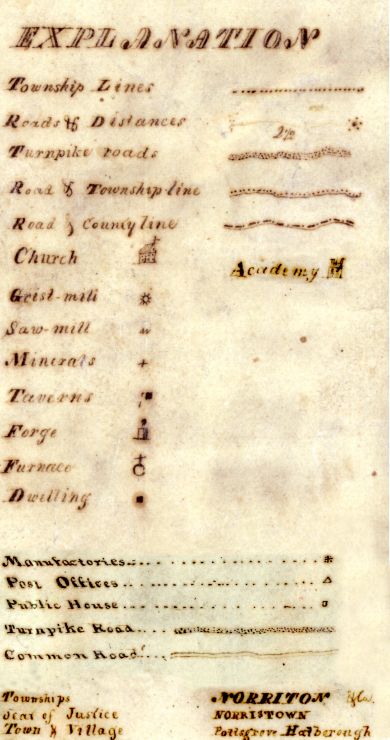 EXPLANATION
Township Lines
Roads & Distances 2½
Turnpike roads
Road & Township line
Road & County line
Church
Academy
Grist-mill
Saw-mill
Minerals
Taverns
Forge
Furnace
Dwelling
Manufactories
Post Offices
Public House
Turnpike Road
Common Road
Townships NORRITON &c.
Seat of Justice NORRISTOWN
Town & Village Pottsgrove Hatborough